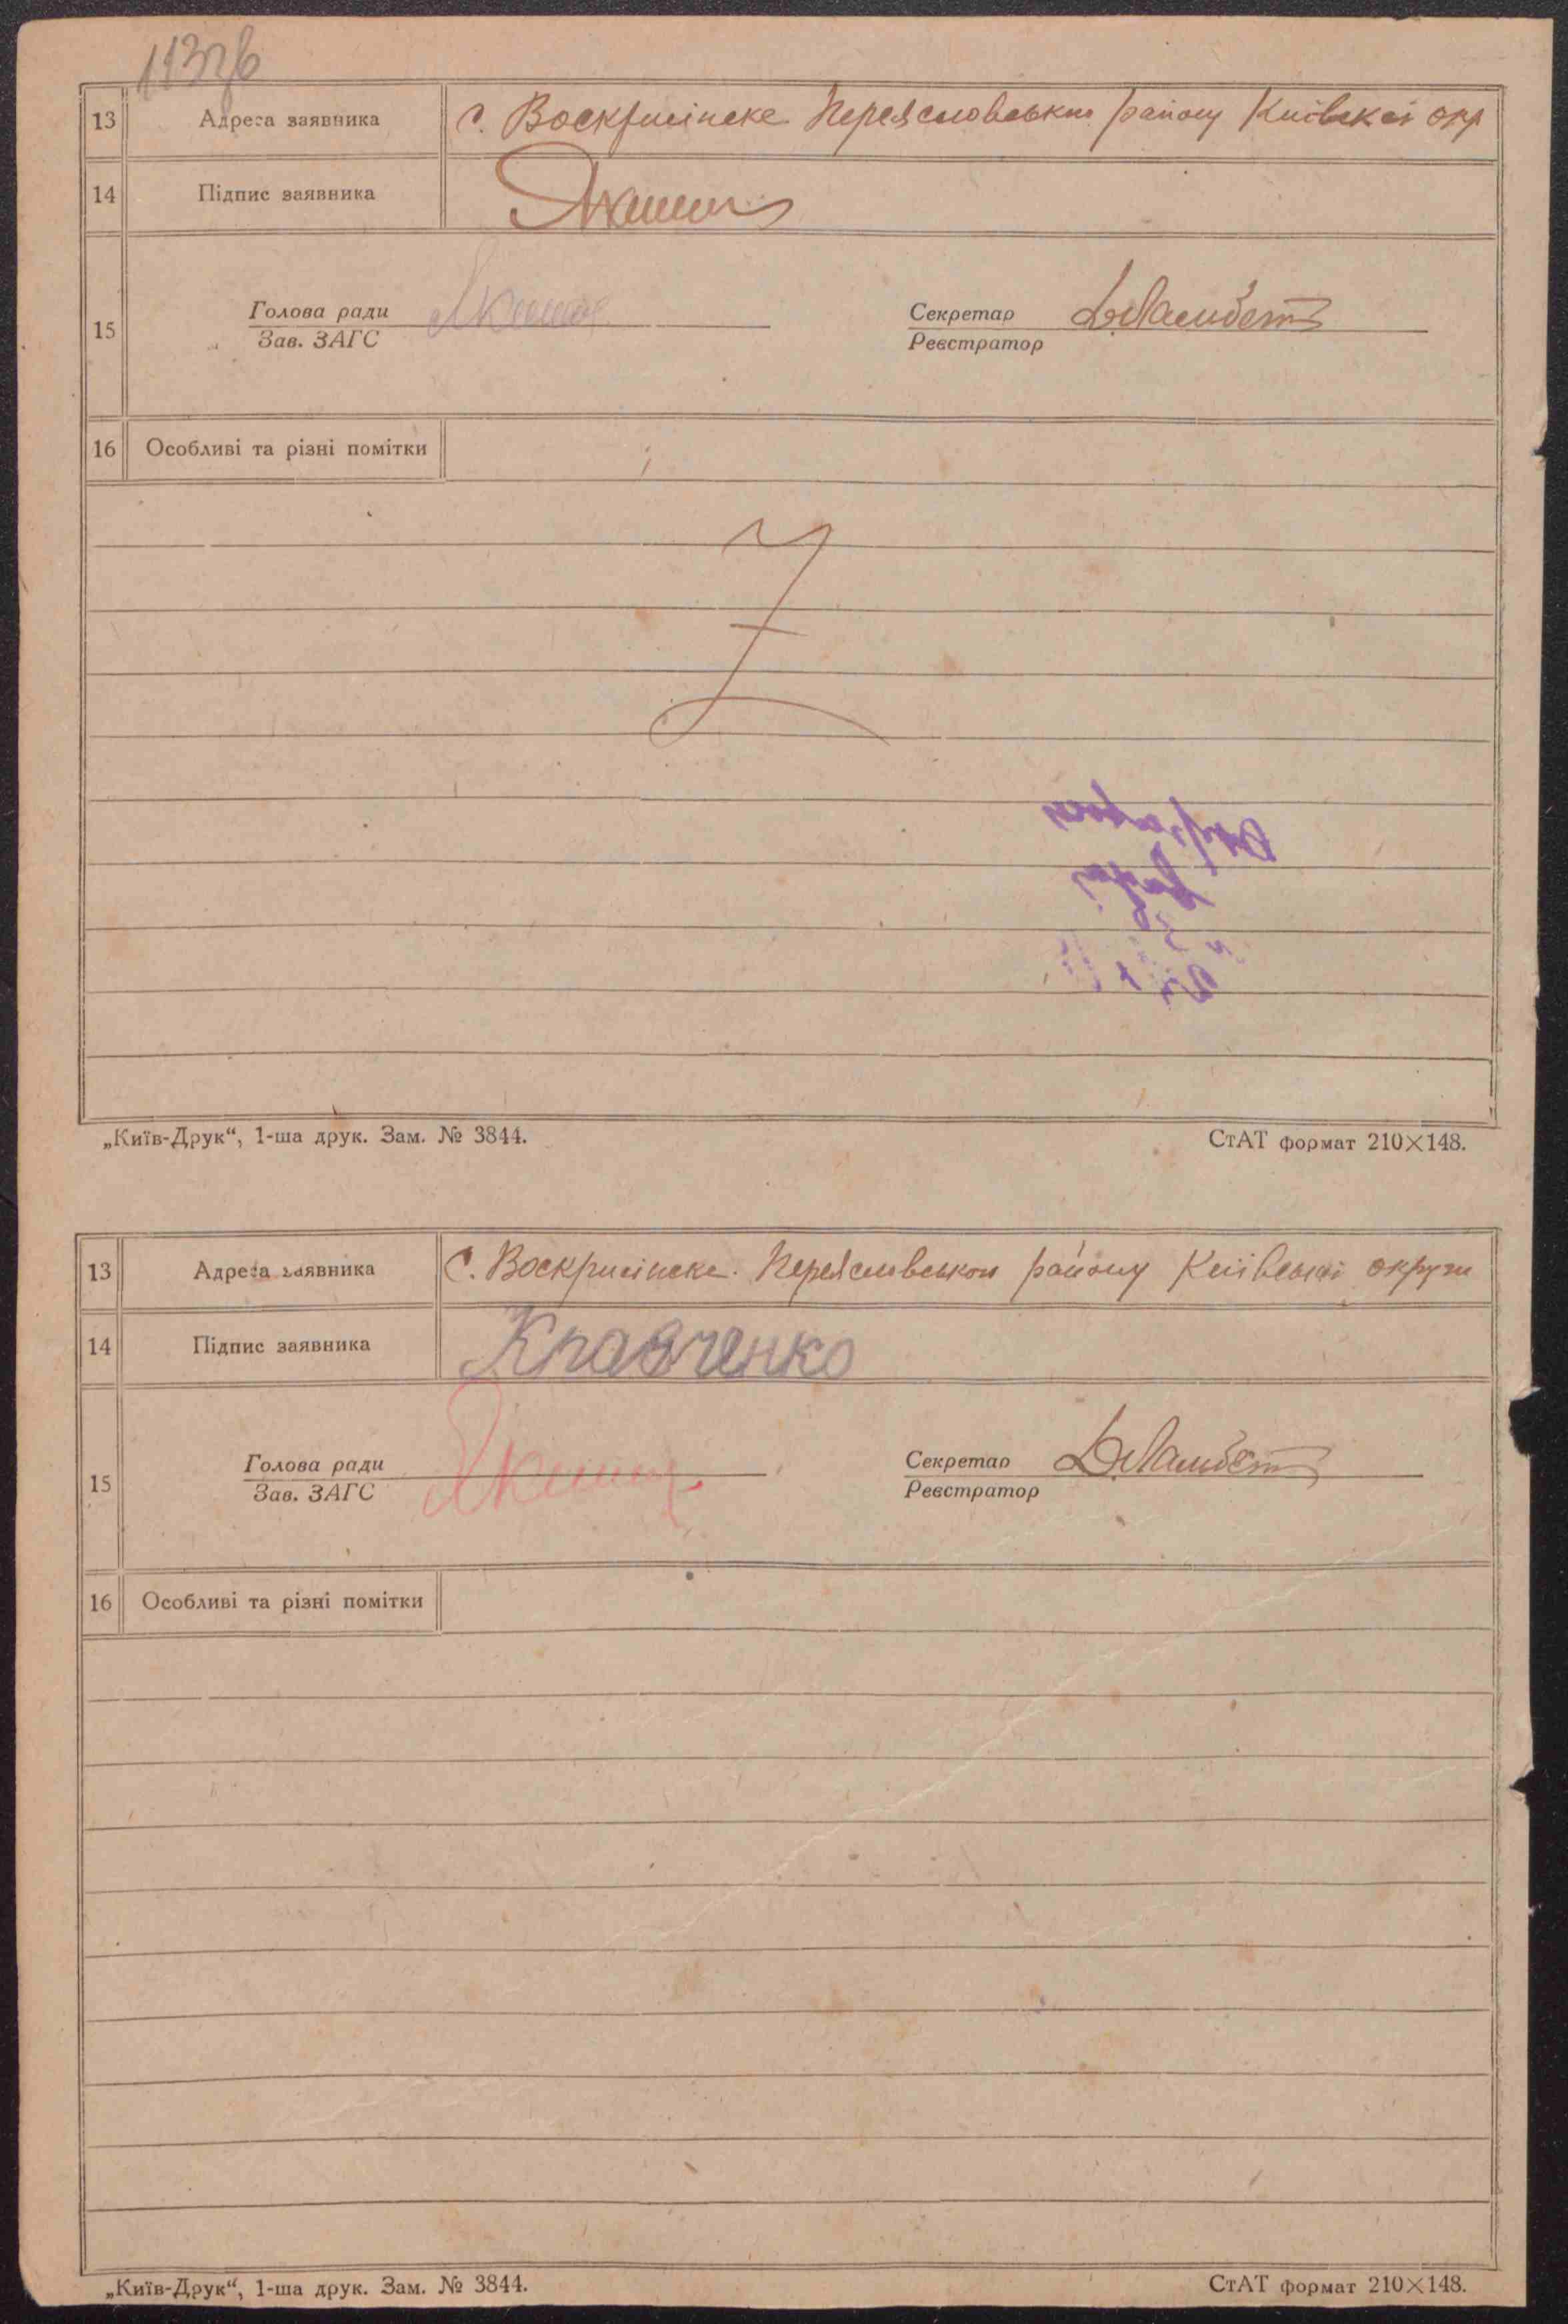 13 Адреса заявника с. Воскрисінске Переяславського району Київскої окр
14 Підпис заявника
15 Голова ради
Зав. ЗАГС
Секретар
Реєстратор
16 Особливі та різні помітки
„Київ-Друк“, 1-ша друк. Зам. № 3844. СтАТ формат 210×148.
13 Адреса заявника С. Воскрисінске. Переяславського району Київської округи
14 Підпис заявника Кравченко
15 Голова ради
Зав. ЗАГС
Секретар
Реєстратор
16 Особливі та різні помітки
„Київ-Друк“, 1-ша друк. Зам. № 3844. СтАТ формат 210×148.